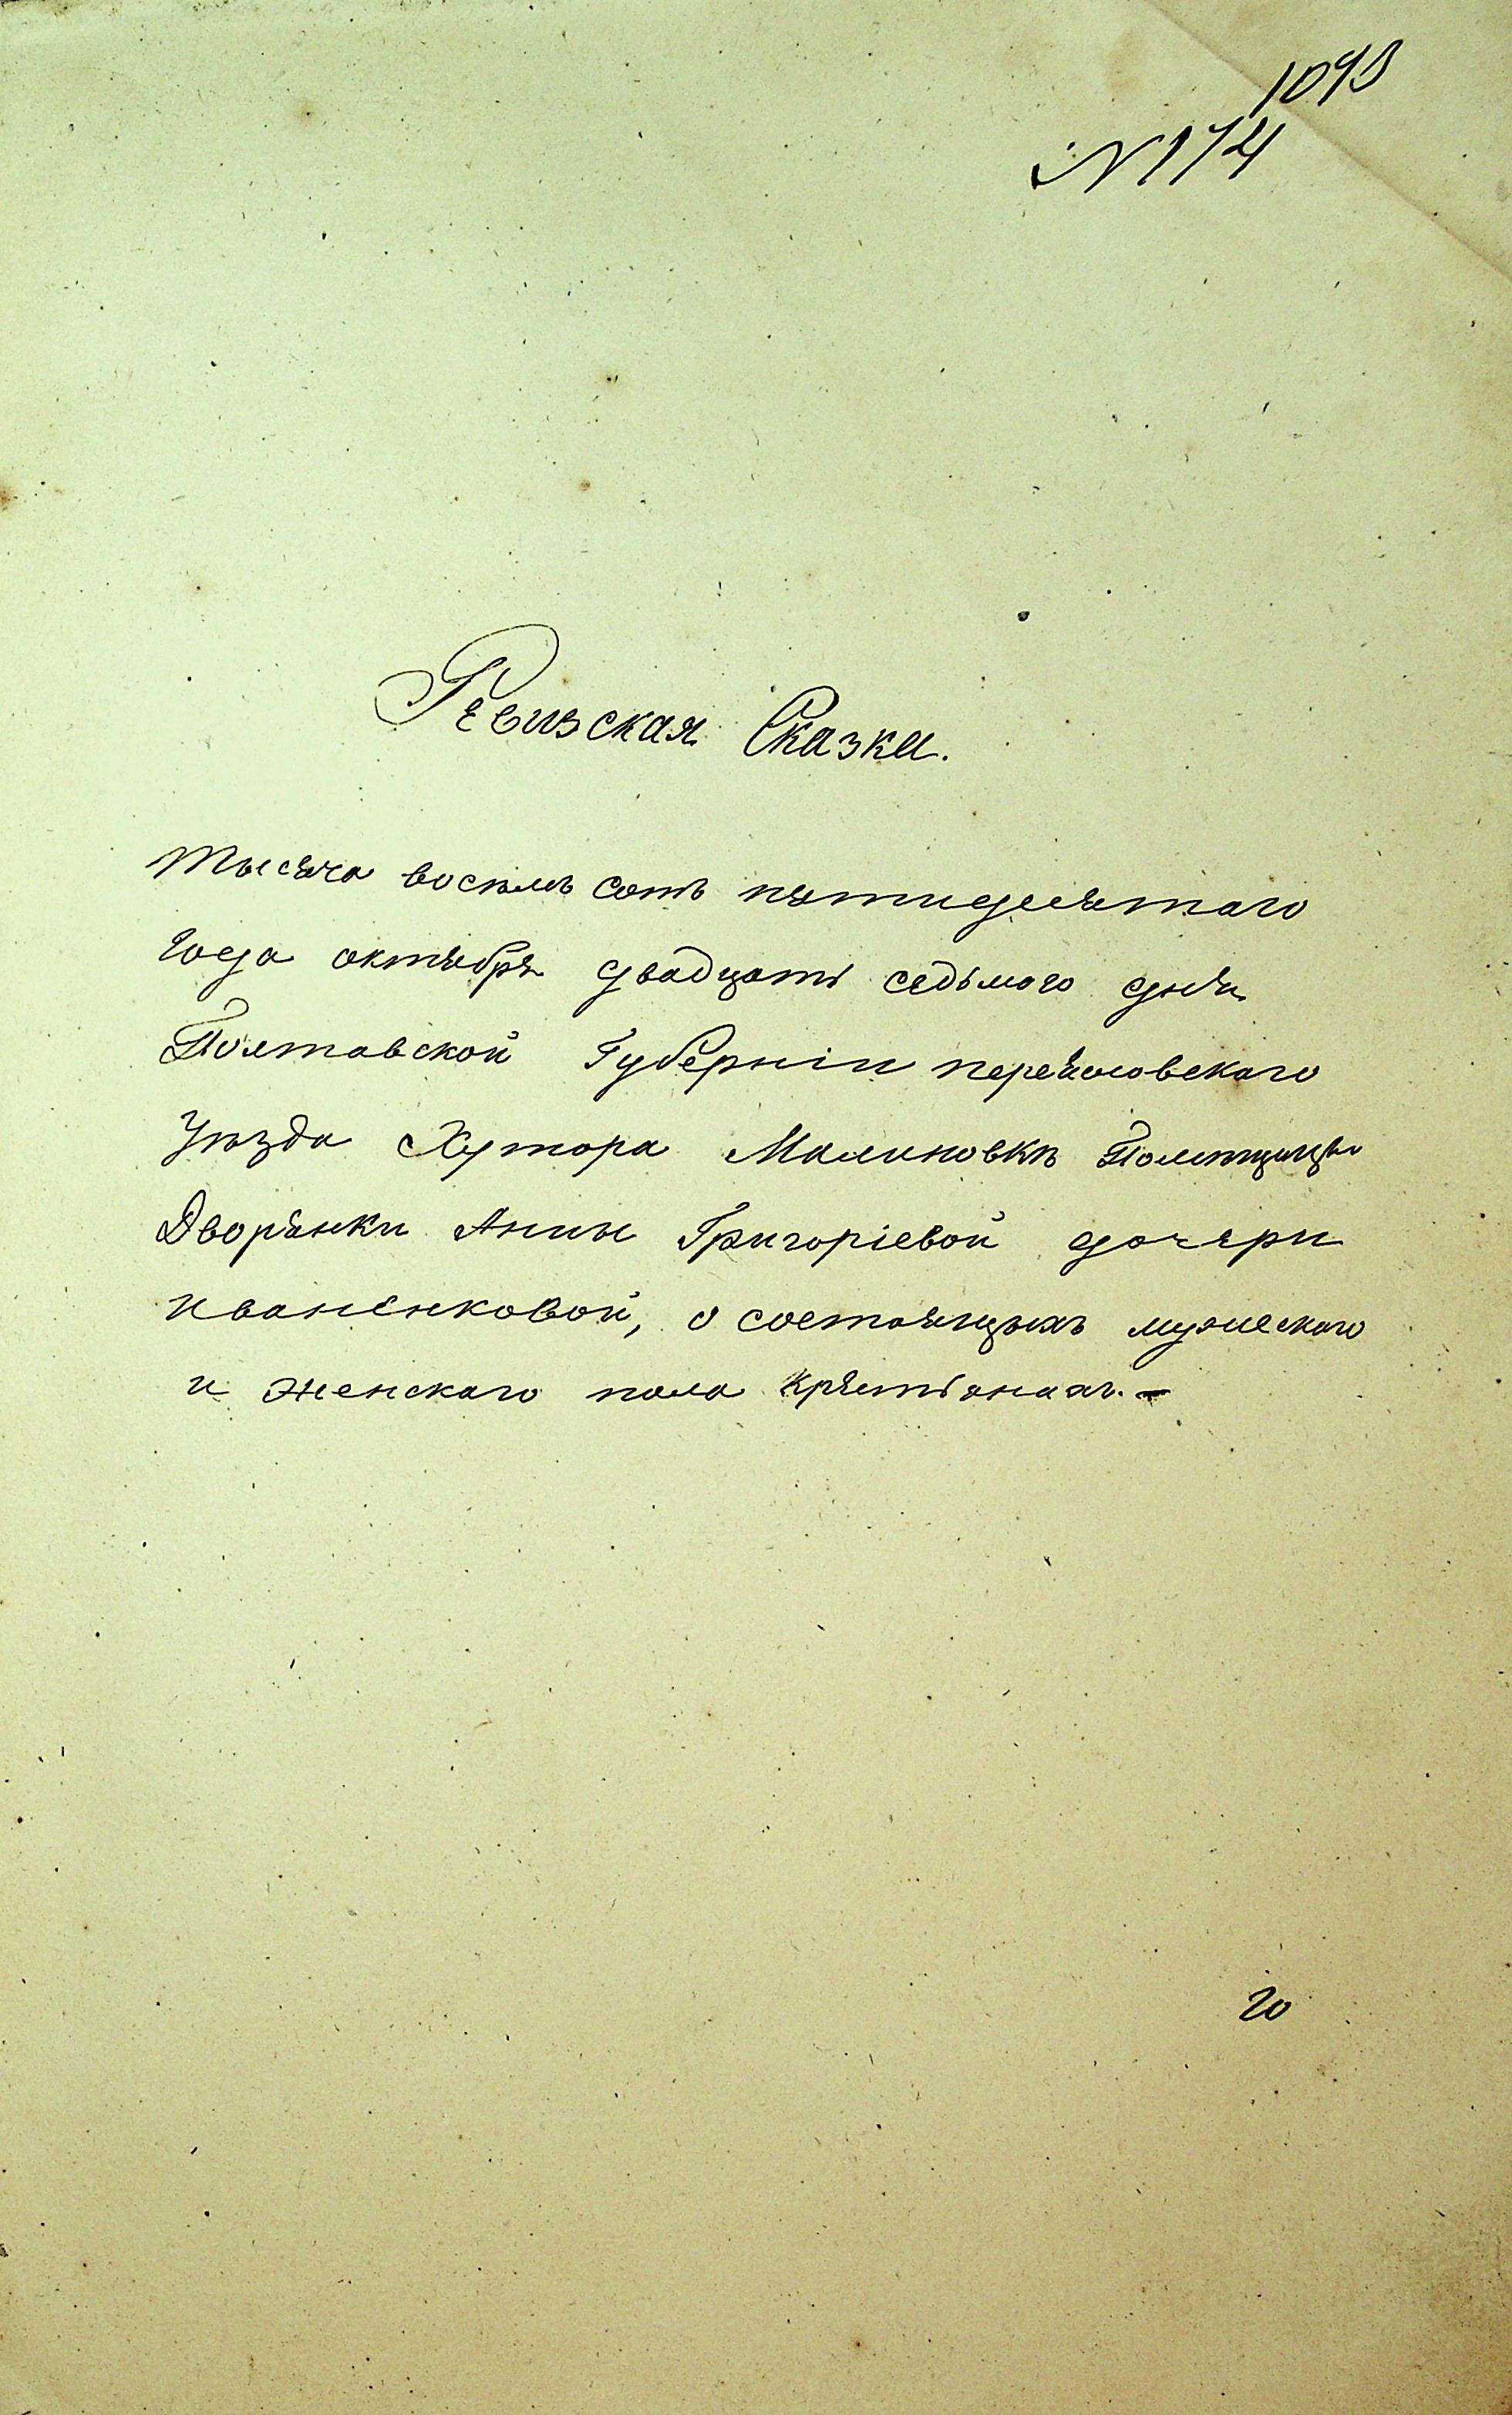 1093
№ 174
Ревизская Сказка.
Тысяча восемь сотъ пятидесятаго
года октября двадцать седьмого дня
Полтавской Губерніи переяловскаго
Уѣзда Хутора Малиновкѣ Помѣщицы
Дворянки Анны Григоріевой дочери
иваненковой, о состоящыхъ мужескаго
и женскаго пола крестьянахъ.-
20